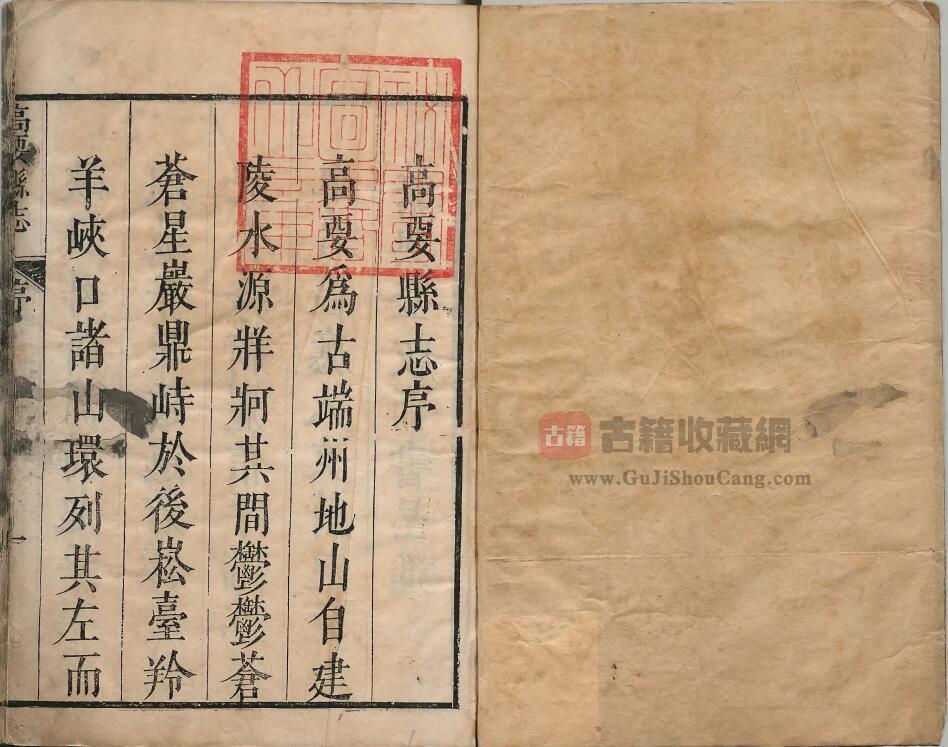 高要縣志序
高要爲古端州地山自建
陵水源牂牁其間鬱鬱蒼
蒼星巖鼎峙於後崧臺羚
羊峽口諸山環列其左而
高要縣志
序
一
古籍
古籍收藏網
www.GuJiShouCang.com